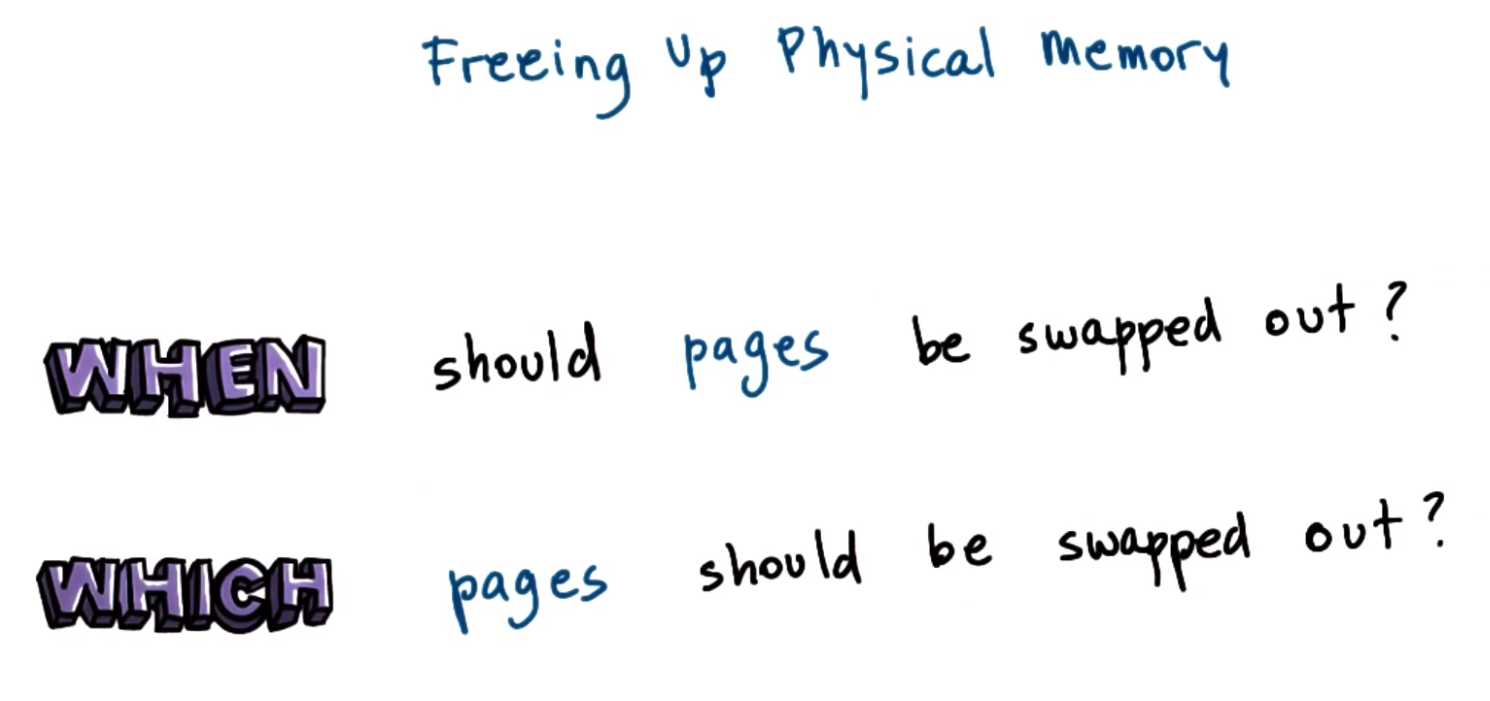 Freeing Up Physical Memory
WHEN should pages be swapped out?
WHICH pages should be swapped out?